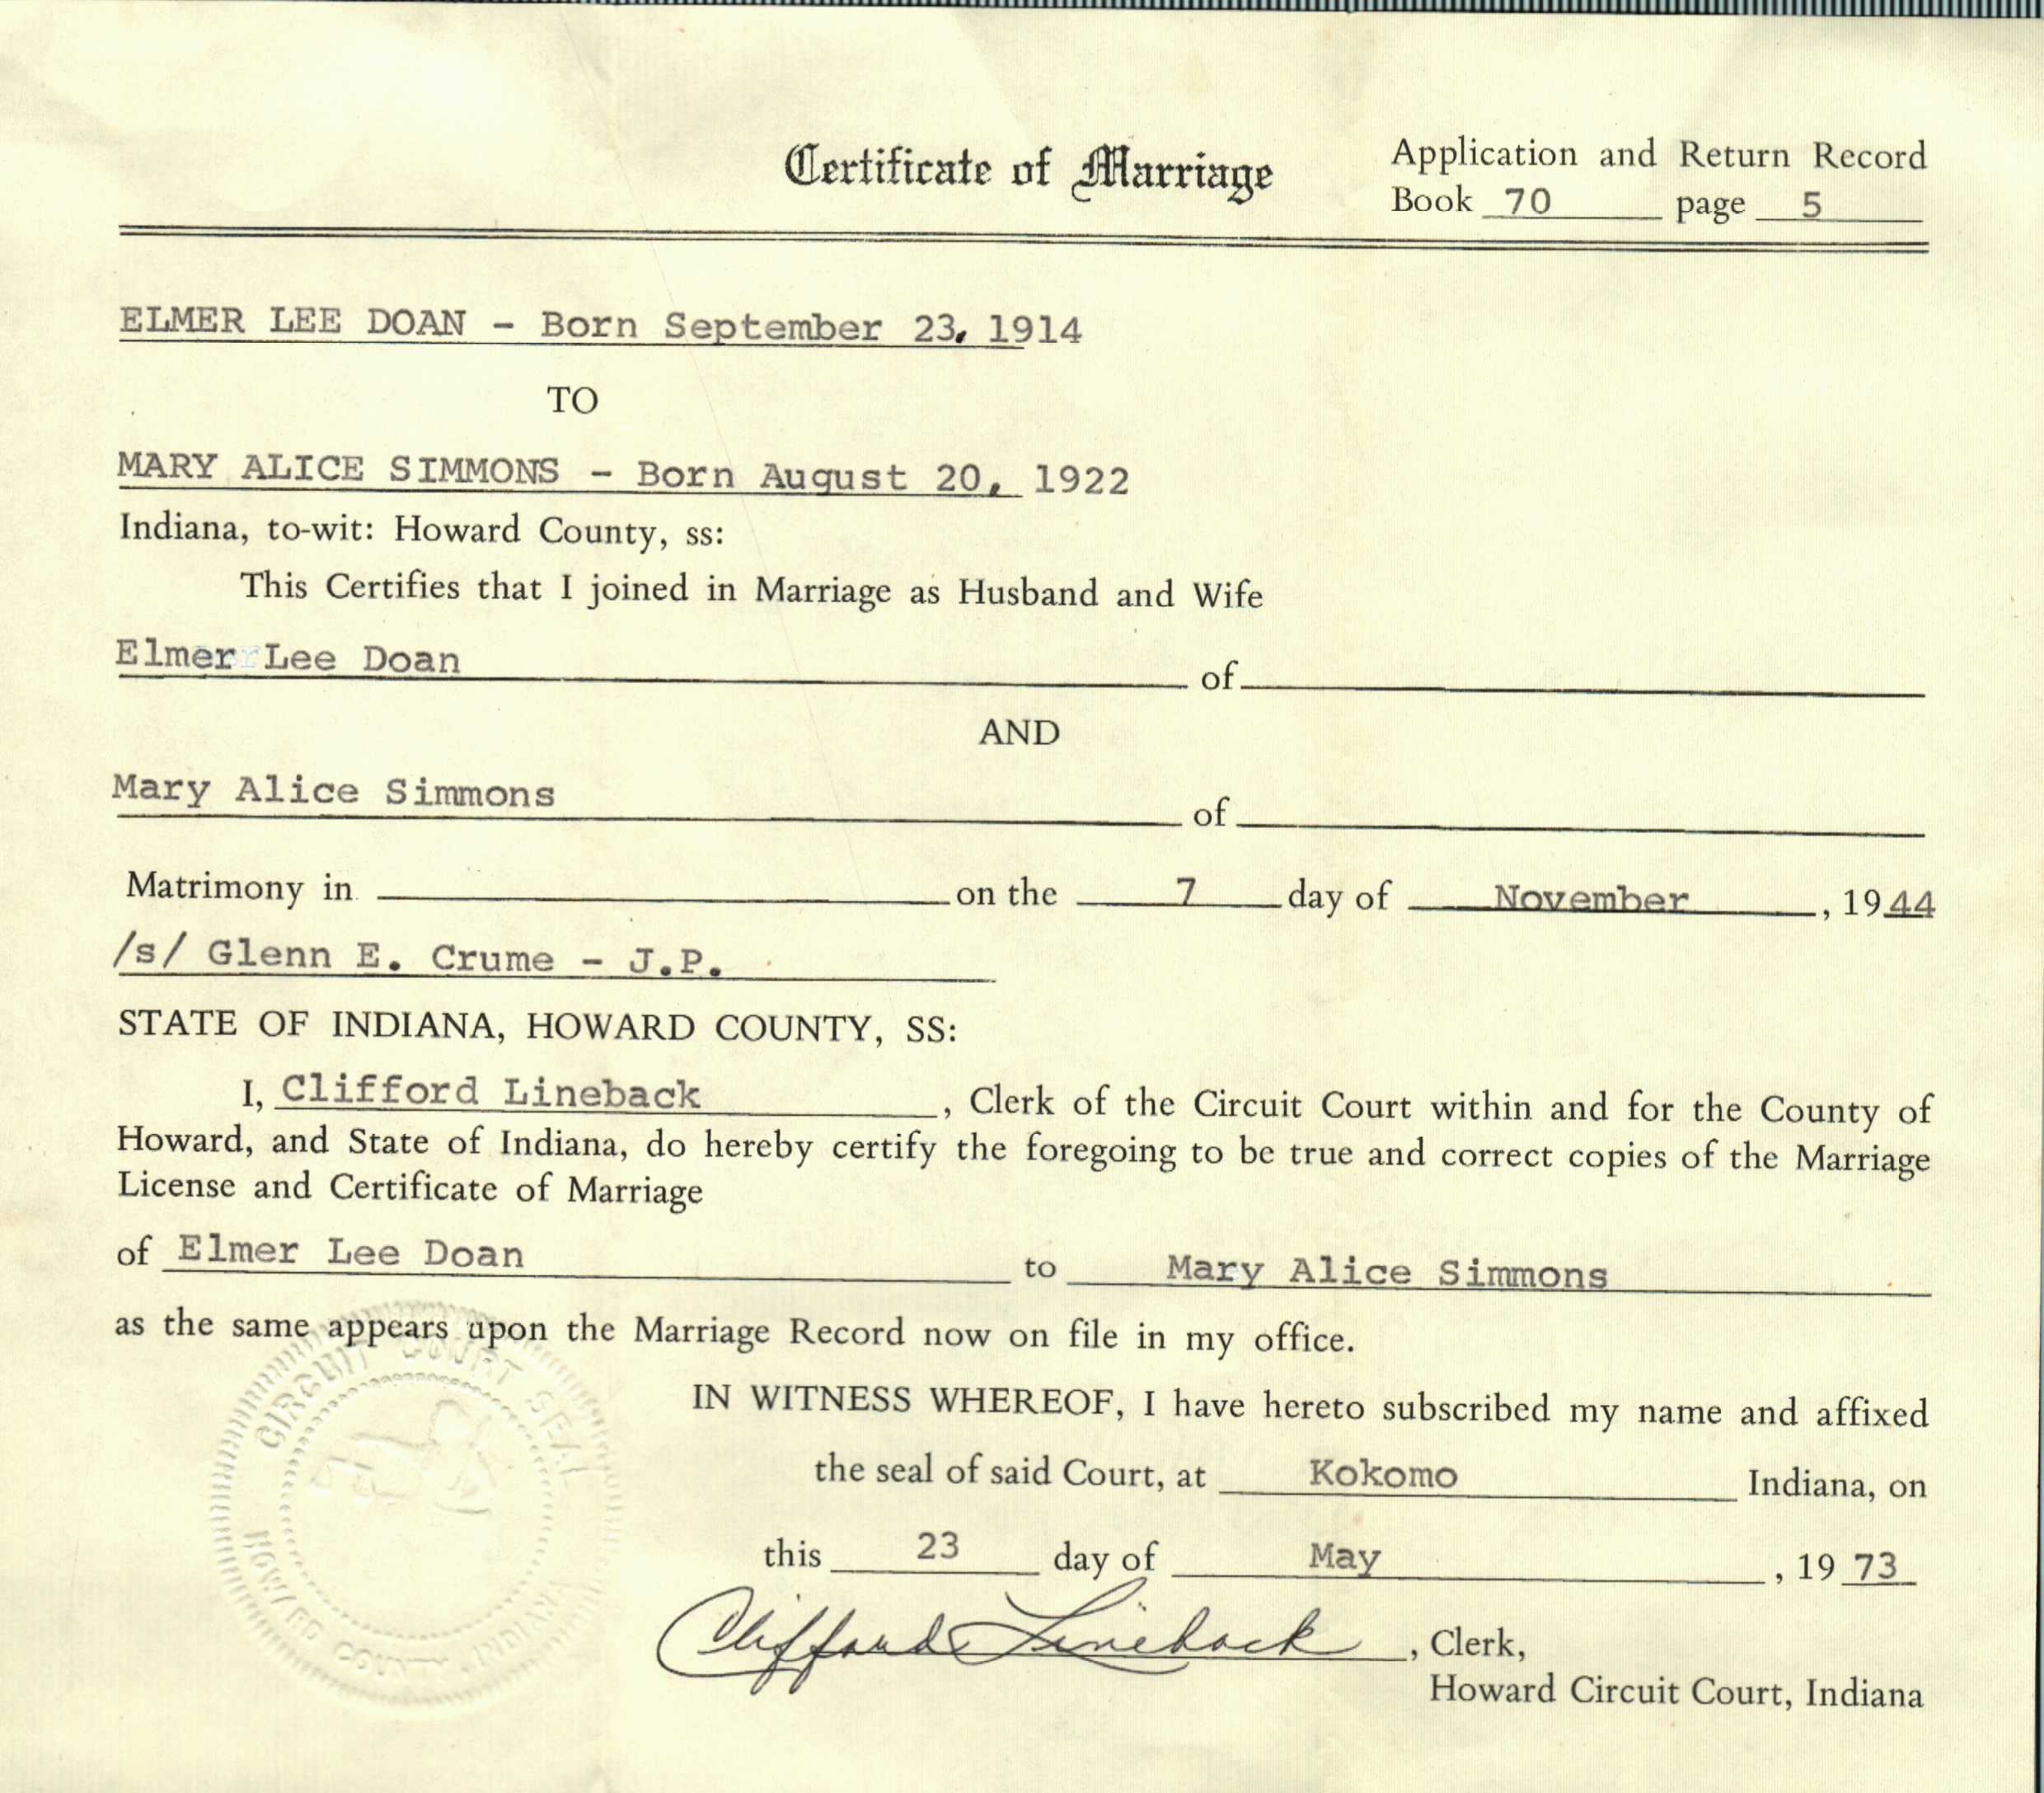 Certificate of Marriage
Application and Return Record
Book 70 page 5
ELMER LEE DOAN - Born September 23, 1914
TO
MARY ALICE SIMMONS - Born August 20, 1922
Indiana, to-wit: Howard County, ss:
This Certifies that I joined in Marriage as Husband and Wife
Elmer Lee Doan of
AND
Mary Alice Simmons of
Matrimony in on the 7 day of November, 1944
/s/ Glenn E. Crume - J.P.
STATE OF INDIANA, HOWARD COUNTY, SS:
I, Clifford Lineback, Clerk of the Circuit Court within and for the County of
Howard, and State of Indiana, do hereby certify the foregoing to be true and correct copies of the Marriage
License and Certificate of Marriage
of Elmer Lee Doan to Mary Alice Simmons
as the same appears upon the Marriage Record now on file in my office.
CIRCUIT COURT SEAL
HOWARD COUNTY, INDIANA
IN WITNESS WHEREOF, I have hereto subscribed my name and affixed
the seal of said Court, at Kokomo Indiana, on
this 23 day of May, 1973
Clifford Lineback, Clerk,
Howard Circuit Court, Indiana